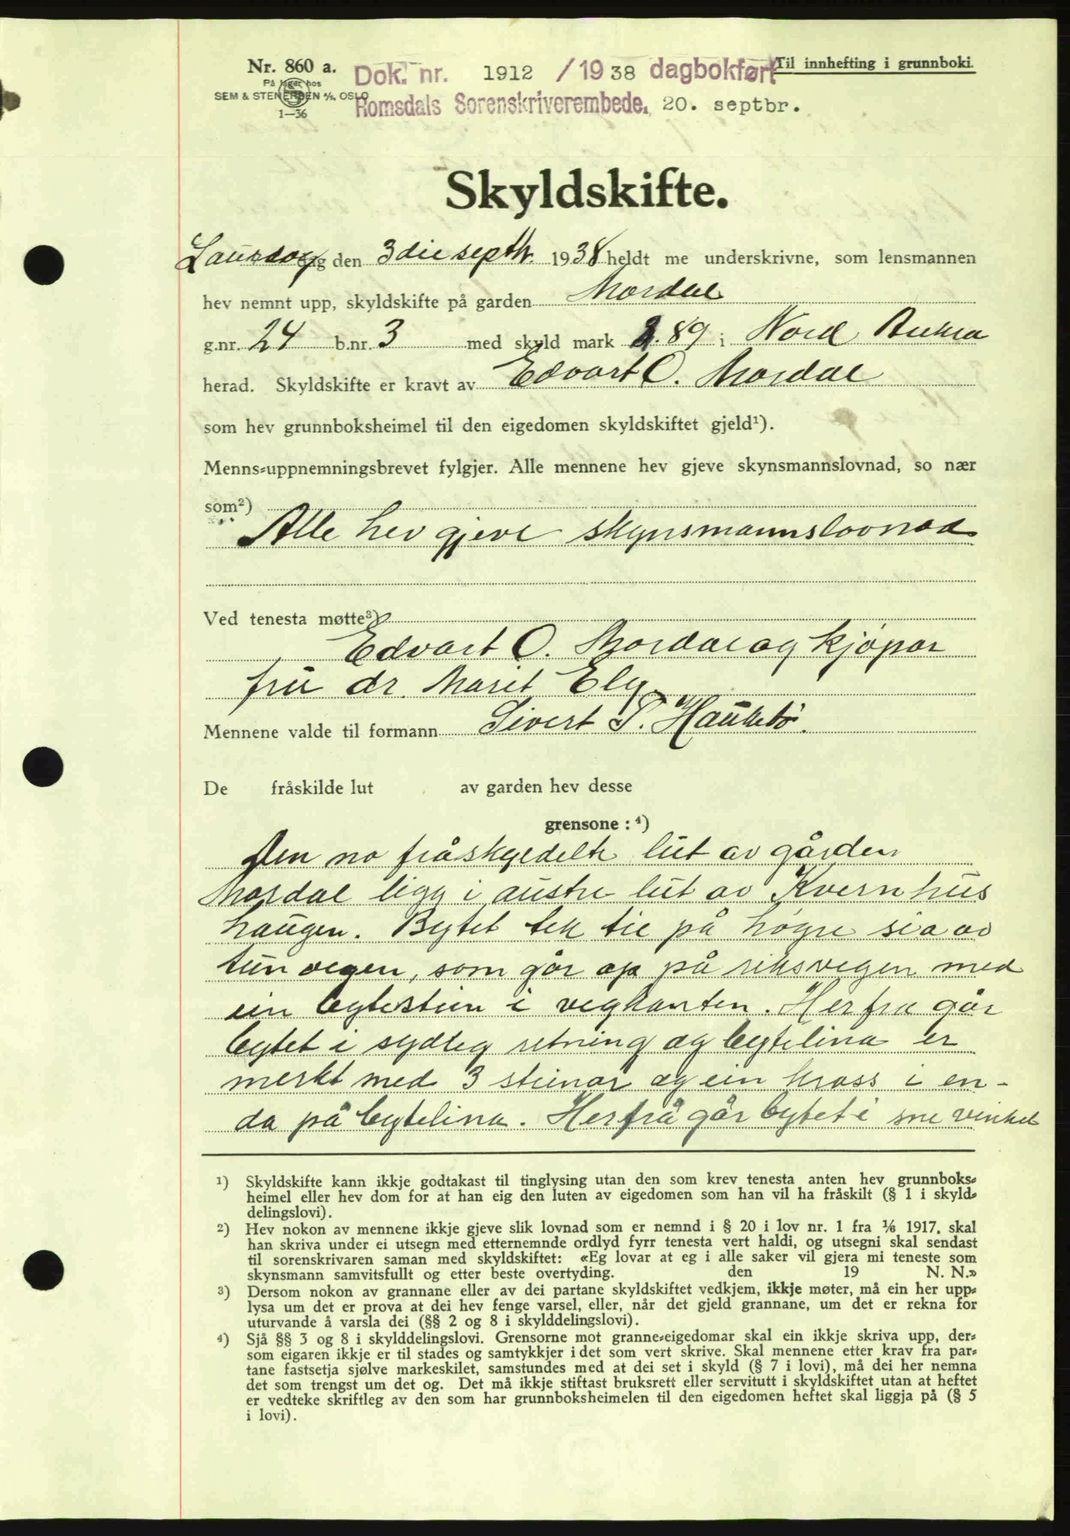 Nr. 860 a.
På lager hos
SEM & STENERSEN A/S, OSLO
1—36
Dok. nr. 1912 /1938 dagbokført
Romsdals Sorenskriverembede, 20. septbr.
Til innhefting i grunnboki.
Skyldskifte.
Laurdag dag den 3die septbr. 1938 heldt me underskrivne, som lensmannen
hev nemnt upp, skyldskifte på garden Mordal
g.nr. 24 b.nr. 3 med skyld mark 2.89 i Nord Aukra
herad. Skyldskifte er kravt av Edvart O. Mordal
som hev grunnboksheimel til den eigedomen skyldskiftet gjeld¹).
Menns-uppnemningsbrevet fylgjer. Alle mennene hev gjeve skynsmannslovnad, so nær
som²)
Alle hev gjeve skynsmannslovnad
Ved tenesta møtte³)
Edvart O. Mordal og kjøpar
fru dr. Marit Ely
Mennene valde til formann Sivert P. Haukebø.
De fråskilde lut av garden hev desse
grensone : ⁴)
Den no fråskyldelte lut av gården
Mordal ligg i austre lut av Kvernhus
haugen. Bytet tek til på høgre sia av
tunvegen, som går op på riksvegen med
ein bytestein i vegkanten. Herfra går
bytet i sydleg retning og bytelina er
merkt med 3 steinar og ein kross i en-
da på bytelina. Herfrå går bytet i vinkel
¹) Skyldskifte kann ikkje godtakast til tinglysing utan den som krev tenesta anten hev grunnboks-
heimel eller hev dom for at han eig den luten av eigedomen som han vil ha fråskilt (§ 1 i skyld-
delingslovi).
²) Hev nokon av mennene ikkje gjeve slik lovnad som er nemnd i § 20 i lov nr. 1 fra 1/6 1917, skal
han skriva under ei utsegn med etternemnde ordlyd fyrr tenesta vert haldi, og utsegni skal sendast
til sorenskrivaren saman med skyldskiftet: «Eg lovar at eg i alle saker vil gjera mi teneste som
skynsmann samvitsfullt og etter beste overtyding. den 19 N. N.»
³) Dersom nokon av grannane eller av dei partane skyldskiftet vedkjem, ikkje møter, må ein her upp-
lysa um det er prova at dei hev fenge varsel, eller, når det gjeld grannane, um det er rekna for
uturvande å varsla dei (§§ 2 og 8 i skylddelingslovi).
⁴) Sjå §§ 3 og 8 i skylddelingslovi. Grensorne mot granne-eigedomar skal ein ikkje skriva upp, der-
som eigaren ikkje er til stades og samtykkjer i det som vert skrive. Skal mennene etter krav fra par-
tane fastsetja sjølve markeskilet, samstundes med at dei set i skyld (§ 7 i lovi), må dei her nemna
det som trengst um det og. Det må ikkje stiftast bruksrett eller servitutt i skyldskiftet utan at heftet
er vedteke skriftleg av den som har grunnboksheimelen til den eigedomen heftet skal liggja på (§ 5
i lovi).